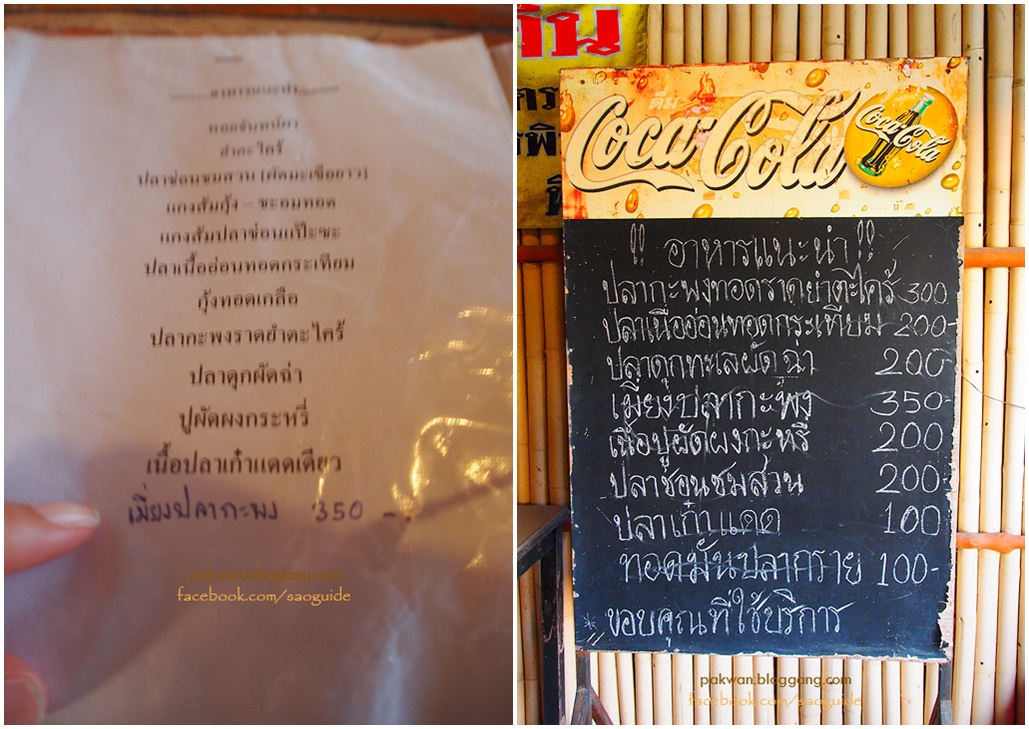 อาหารแนะนำ
ปลาช่อนชมสวน (ผัดมะเขือยาว)
แกงส้มกุ้ง – ชะอมทอด
แกงส้มปลาช่อนแป๊ะซะ
ปลาเนื้ออ่อนทอดกระเทียม
กุ้งทอดเกลือ
ปลากะพงราดยำตะไคร้
ปลาดุกผัดฉ่า
ปูผัดผงกระหรี่
เนื้อปลาเก๋าแดดเดียว
เมี่ยงปลากะพง 350 -.
pakwan.bloggang.com
facebook.com/saoguide
กิน
ดื่ม
Coca-Cola
Coca-Cola
!! อาหารแนะนำ !!
ปลากะพงทอดราดยำตะไคร้ 300
ปลาเนื้ออ่อนทอดกระเทียม 200-
ปลาดุกทะเลผัดฉ่า 200-
เมี่ยงปลากะพง 350-
เนื้อปูผัดผงกะหรี่ 200
ปลาช่อนชมสวน 200-
ปลาเก๋าแดด 100
ทอดมันปลากราย 100-
ขอบคุณที่ใช้บริการ
pakwan.bloggang.com
facebook.com/saoguide